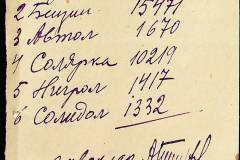 2 Бензин 15471
3 Автол 1670
4 Солярка 10219
5 Нигрол 1417
6 Солидол 1332